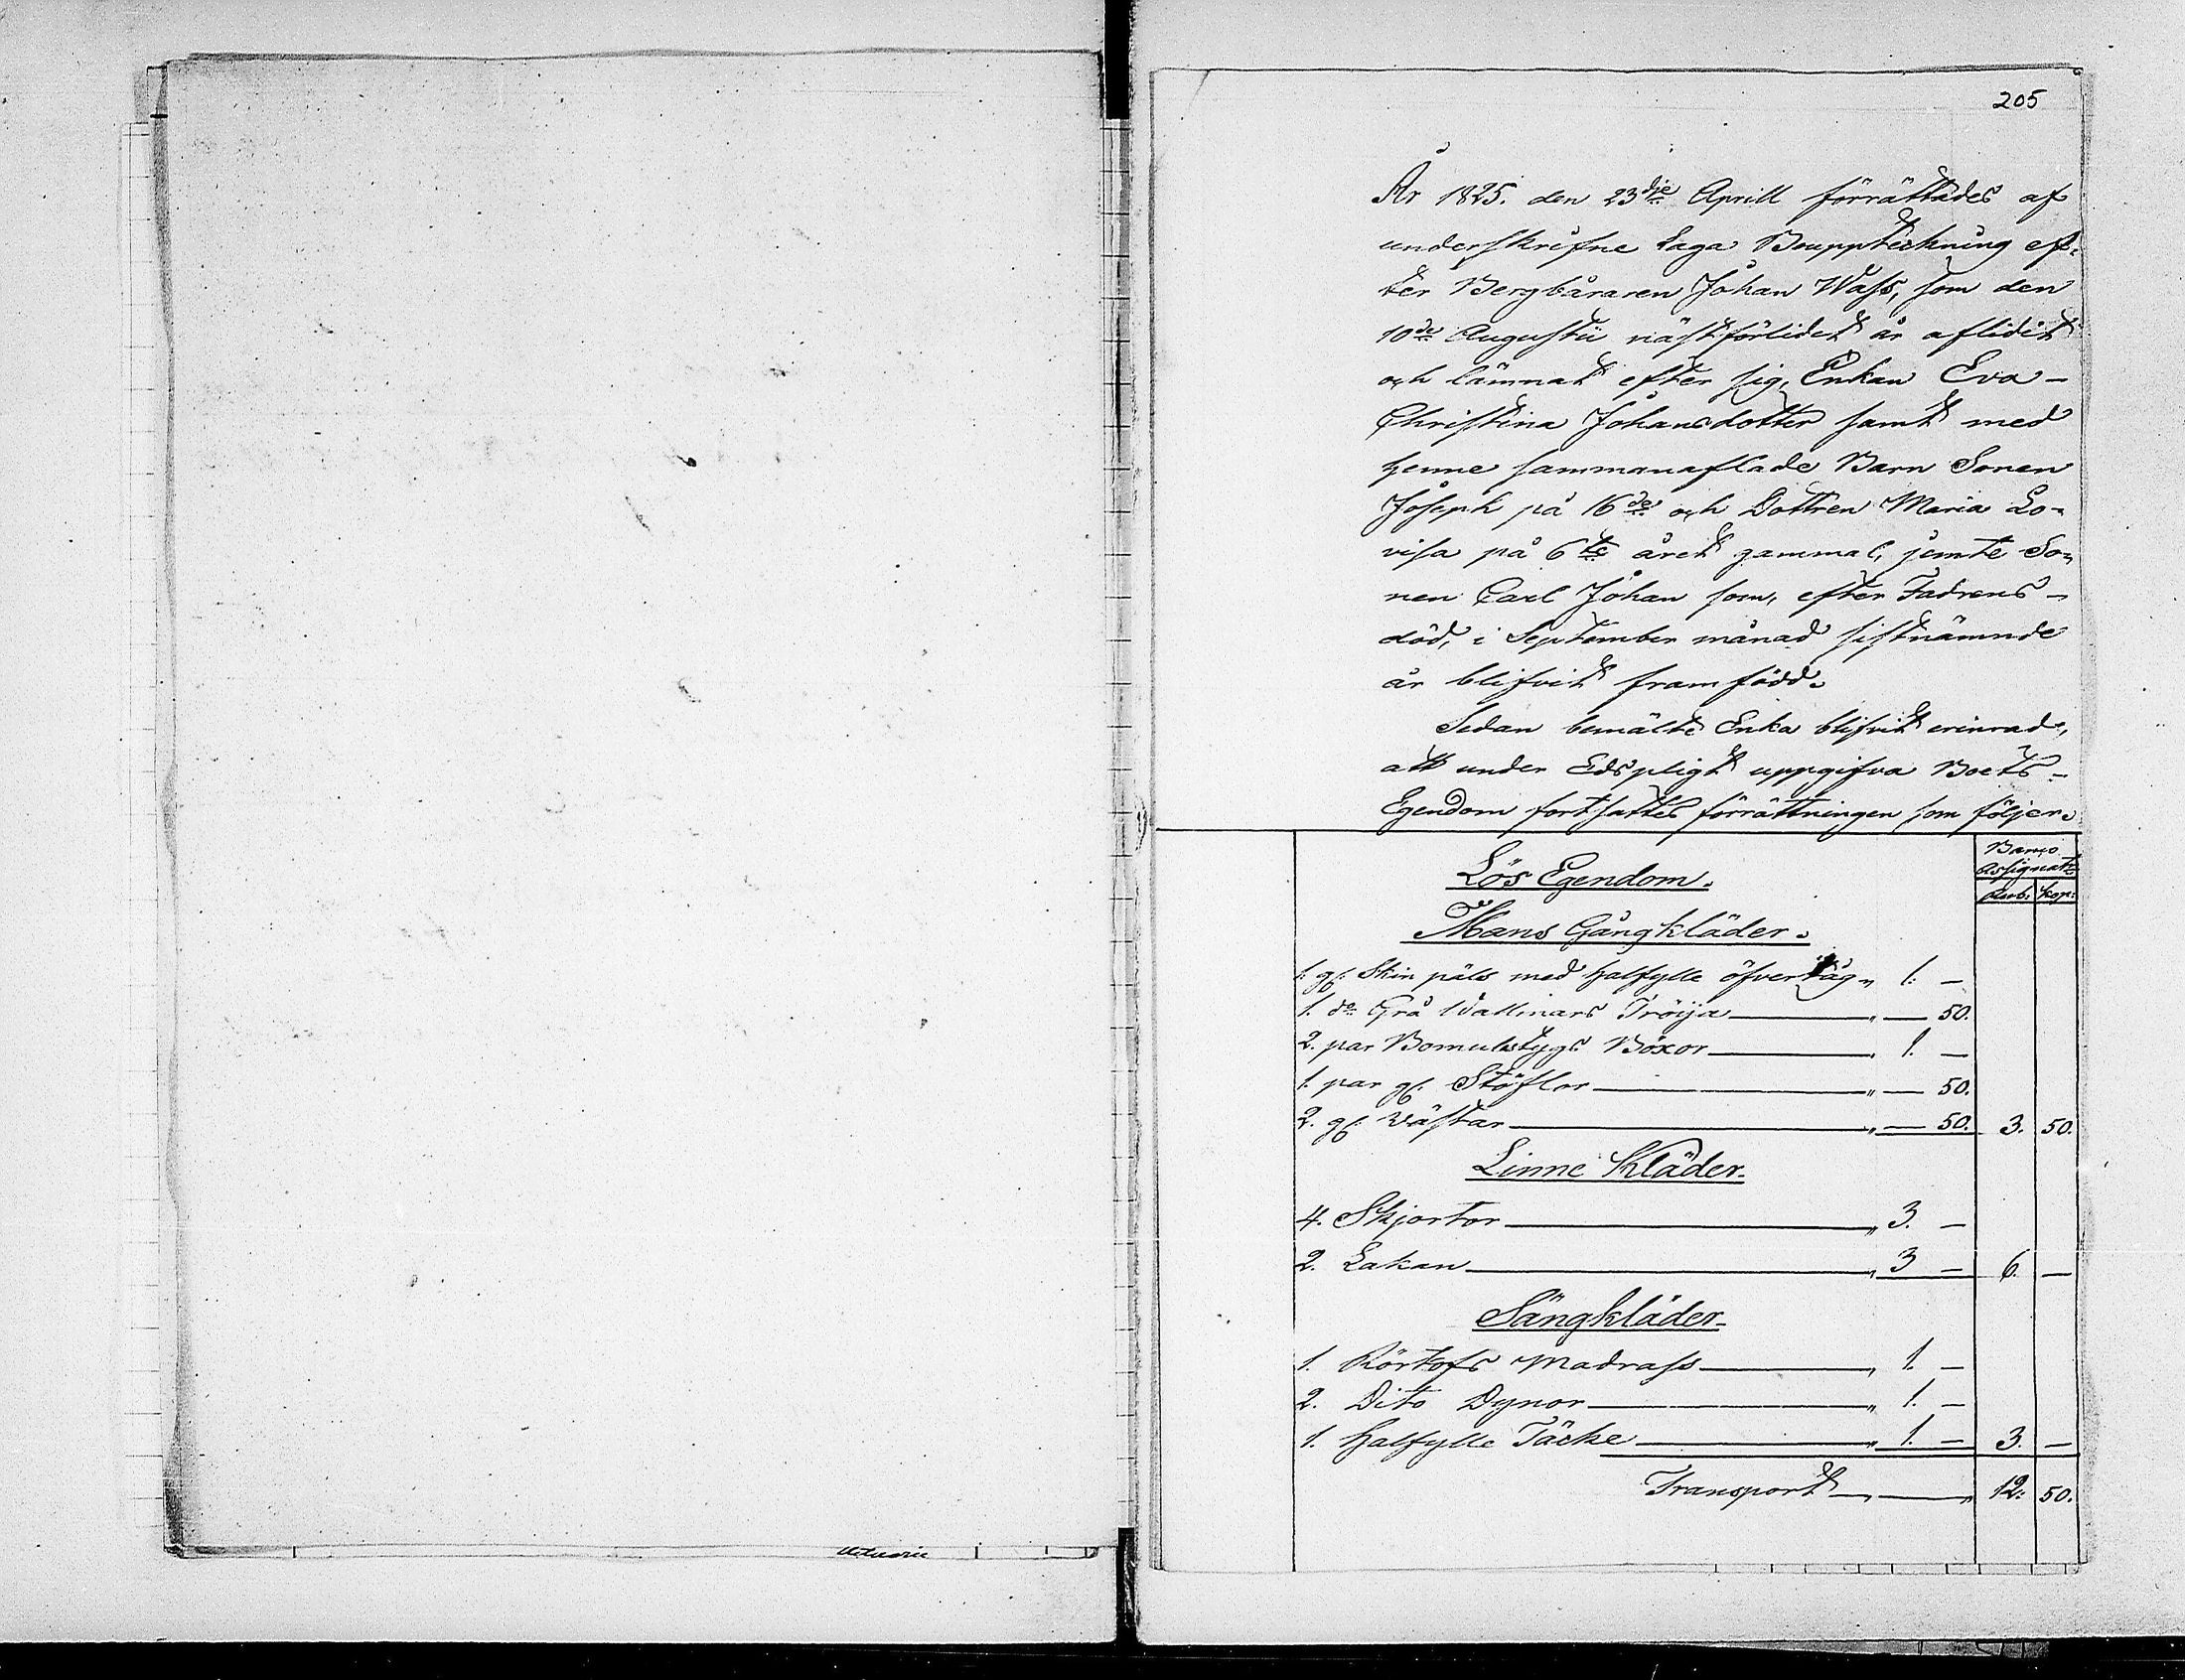 205
År 1825. den 23dje Aprill förrättades af
underskrifne Laga Bouppteckning ef-
ter Bergbäraren Johan Wass, som den
10de Augustii nästförlidet år aflidit
och lämnat efter sig, Enkan Eva-
Christina Johansdotter samt med
henne sammanaflade Barn Sonen
Joseph på 16de och Dottren Maria Lo-
visa på 6te året gammal, jemte So-
nen Carl Johan som, efter Fadrens-
död, i September månad sistnämnde
år blifvit framfödd.
Sedan bemälte Enka blifvit erinrad,
att under Edspligt uppgifva Boets-
Egendom fortsattes förrättningen som följer.
Banco
Assignat:
Rub: kop:
Lös Egendom.
Mans Gångkläder.
1. gl: Skin päls med halfylle öfvertåg „ 1. —
1. do Grå Wallmars Tröija „ — 50.
2. par Bomulstygs Böxor „ 1. —
1. par gl. Stöflor „ — 50.
2. gl: Västar „ — 50. 3. 50.
Linne Kläder.
4. Skjortor „ 3. —
2. Lakan „ 3 — 6. —
Sängkläder.
1. Rörtofs Madrass „ 1. —
2. Dito Dynor „ 1. —
1. halfylle Täcke „ 1. — 3. —
Transport „ 12: 50.